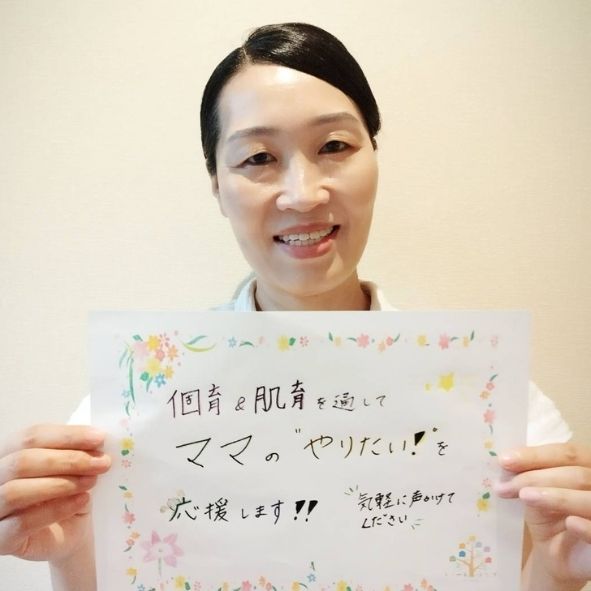 個育&肌育を通して
ママの"やりたい!"を
応援します!!
気軽に声かけて
ください